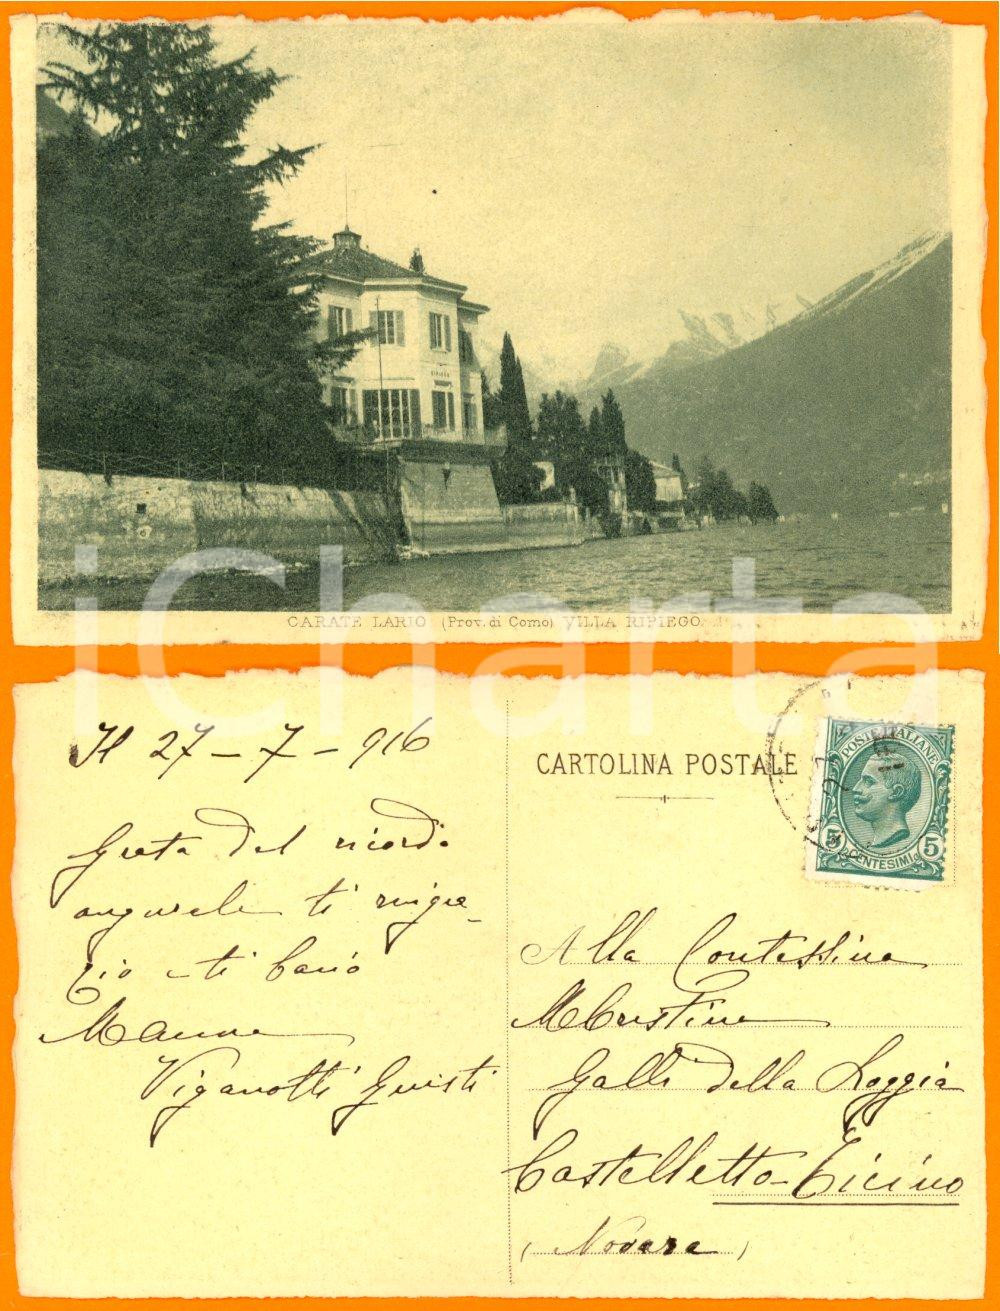 CARATE LARIO (Prov. di Como) VILLA RIPIEGO
iCharta
Il 27 - 7 - 916
Grata del ricordo
augurale ti ringra-
zio e ti bacio
Viganotti Giusti
CARTOLINA POSTALE
POSTE ITALIANE
5 CENTESIMI 5
Alla Contessina
M Cristina
Galli della Loggia
Castelletto-Ticino
(Novara)